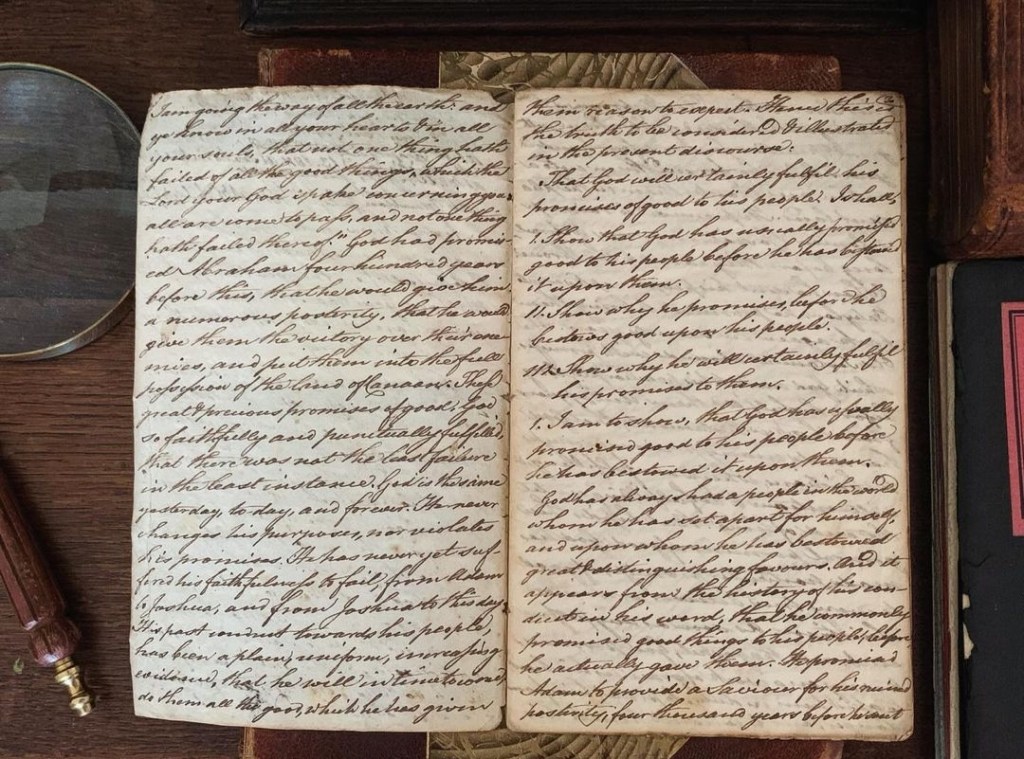 I am going the way of all the earth: and
ye know in all your hearts & in all
your souls, that not one thing hath
failed of all the good things, which the
Lord your God spake concerning you
all are come to pass, and not one thing
hath failed thereof." God had promis-
ed Abraham four hundred years
before this, that he would give him
a numerous posterity, that he would
give them the victory over their ene
mies, and put them into the full
possession of the land of Canaan. These
great & precious promises of good, God
so faithfully and punctually fulfilled,
that there was not the least failure
in the least instance. God is the same
yesterday, to day, and forever. He never
changes his purposes, nor violates
his promises. He has never yet suf-
fered his faithfulness to fail, from Adam
to Joshua, and from Joshua to this day
His past conduct towards his people,
has been a plain, uniform, increasing
evidence, that he will in time to come,
do them all the good, which he has given
them reason to expect. Hence this is
the truth to be considered & illustrated
in the present discourse:
That God will certainly fulfil his
promises of good to his people. I shall,
I. Show that God has usually promised
good to his people before he has bestowed
it upon them.
II. Show why he promises, before he
bestows good upon his people.
III. Show why he will certainly fulfil
his promises to them.
I. I am to show, that God has usually
promised good to his people before
he has bestowed it upon them.
God has always had a people in the world
whom he has set apart for himself,
and upon whom he has bestowed
great & distinguishing favours. And it
appears from the history of his con-
duct in his word, that he commonly
promised good things to his people, before
he actually gave them. He promised
Adam to provide a Saviour for his ruined
posterity, four thousand years before he sent